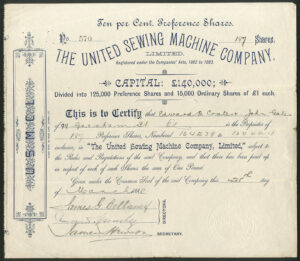 Ten per Cent. Preference Shares.
No. 570
187 Shares.
THE UNITED SEWING MACHINE COMPANY,
LIMITED.
Registered under the Companies' Acts, 1862 to 1883.
CAPITAL: £140,000;
Divided into 125,000 Preference Shares and 15,000 Ordinary Shares of £1 each.
This is to Certify that Edward
of is the Proprietor of
187 Preference Shares, Numbered
inclusive, in "The United Sewing Machine Company, Limited," subject to
the Rules and Regulations of the said Company, and that there has been paid up
in respect of each of such Shares the sum of One Pound.
Given under the Common Seal of the said Company this day
of
DIRECTORS.
SECRETARY.
U.S.M.C.L.